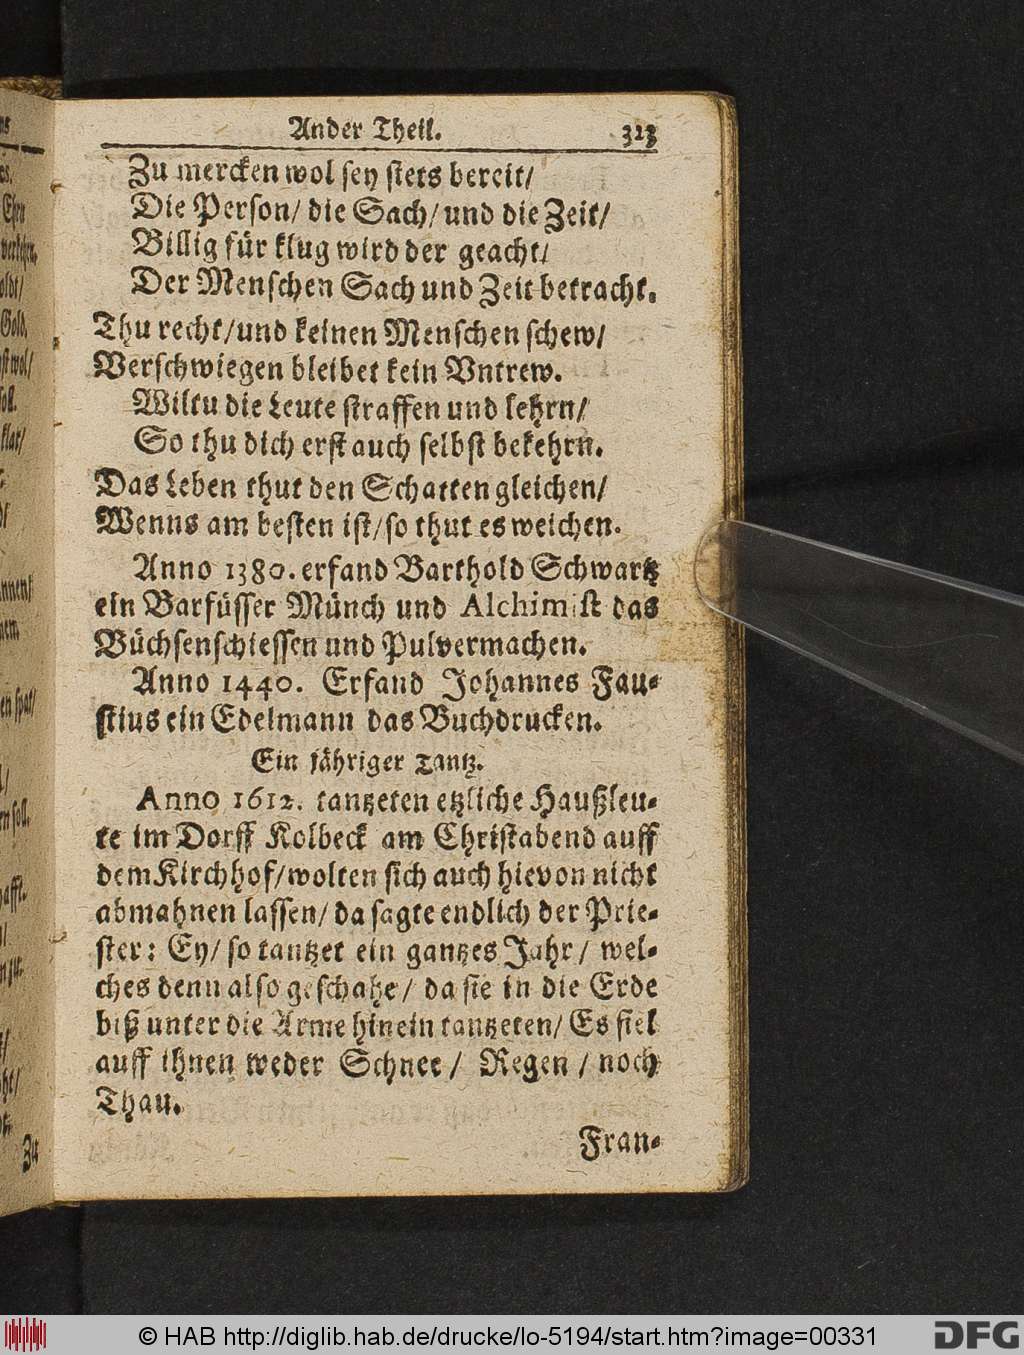 Ander Theil. 313
Zu mercken wol sey stets bereit/
Die Person/ die Sach/ und die Zeit/
Billig für klug wird der geacht/
Der Menschen Sach und Zeit betracht.
Thu recht/ und keinen Menschen schew/
Verschwiegen bleibet kein Vntrew.
Wiltu die Leute straffen und lehrn/
So thu dich erst auch selbst bekehrn.
Das Leben thut den Schatten gleichen/
Wenns am besten ist/ so thut es weichen.
Anno 1380. erfand Barthold Schwartz
ein Barfüsser Münch und Alchimist das
Büchsenschiessen und Pulvermachen.
Anno 1440. Erfand Johannes Fau-
stius ein Edelmann das Buchdrucken.
Ein jähriger Tantz.
Anno 1612. tantzeten etzliche Haußleu-
te im Dorff Kolbeck am Christabend auff
dem Kirchhof/ wolten sich auch hievon nicht
abmahnen lassen/ da sagte endlich der Prie-
ster: Ey/ so tantzet ein gantzes Jahr/ wel-
ches denn also geschahe/ da sie in die Erde
biß unter die Arme hinein tantzeten/ Es fiel
auff ihnen weder Schnee/ Regen/ noch
Thau.
Fran-
Zu
© HAB http://diglib.hab.de/drucke/lo-5194/start.htm?image=00331
DFG